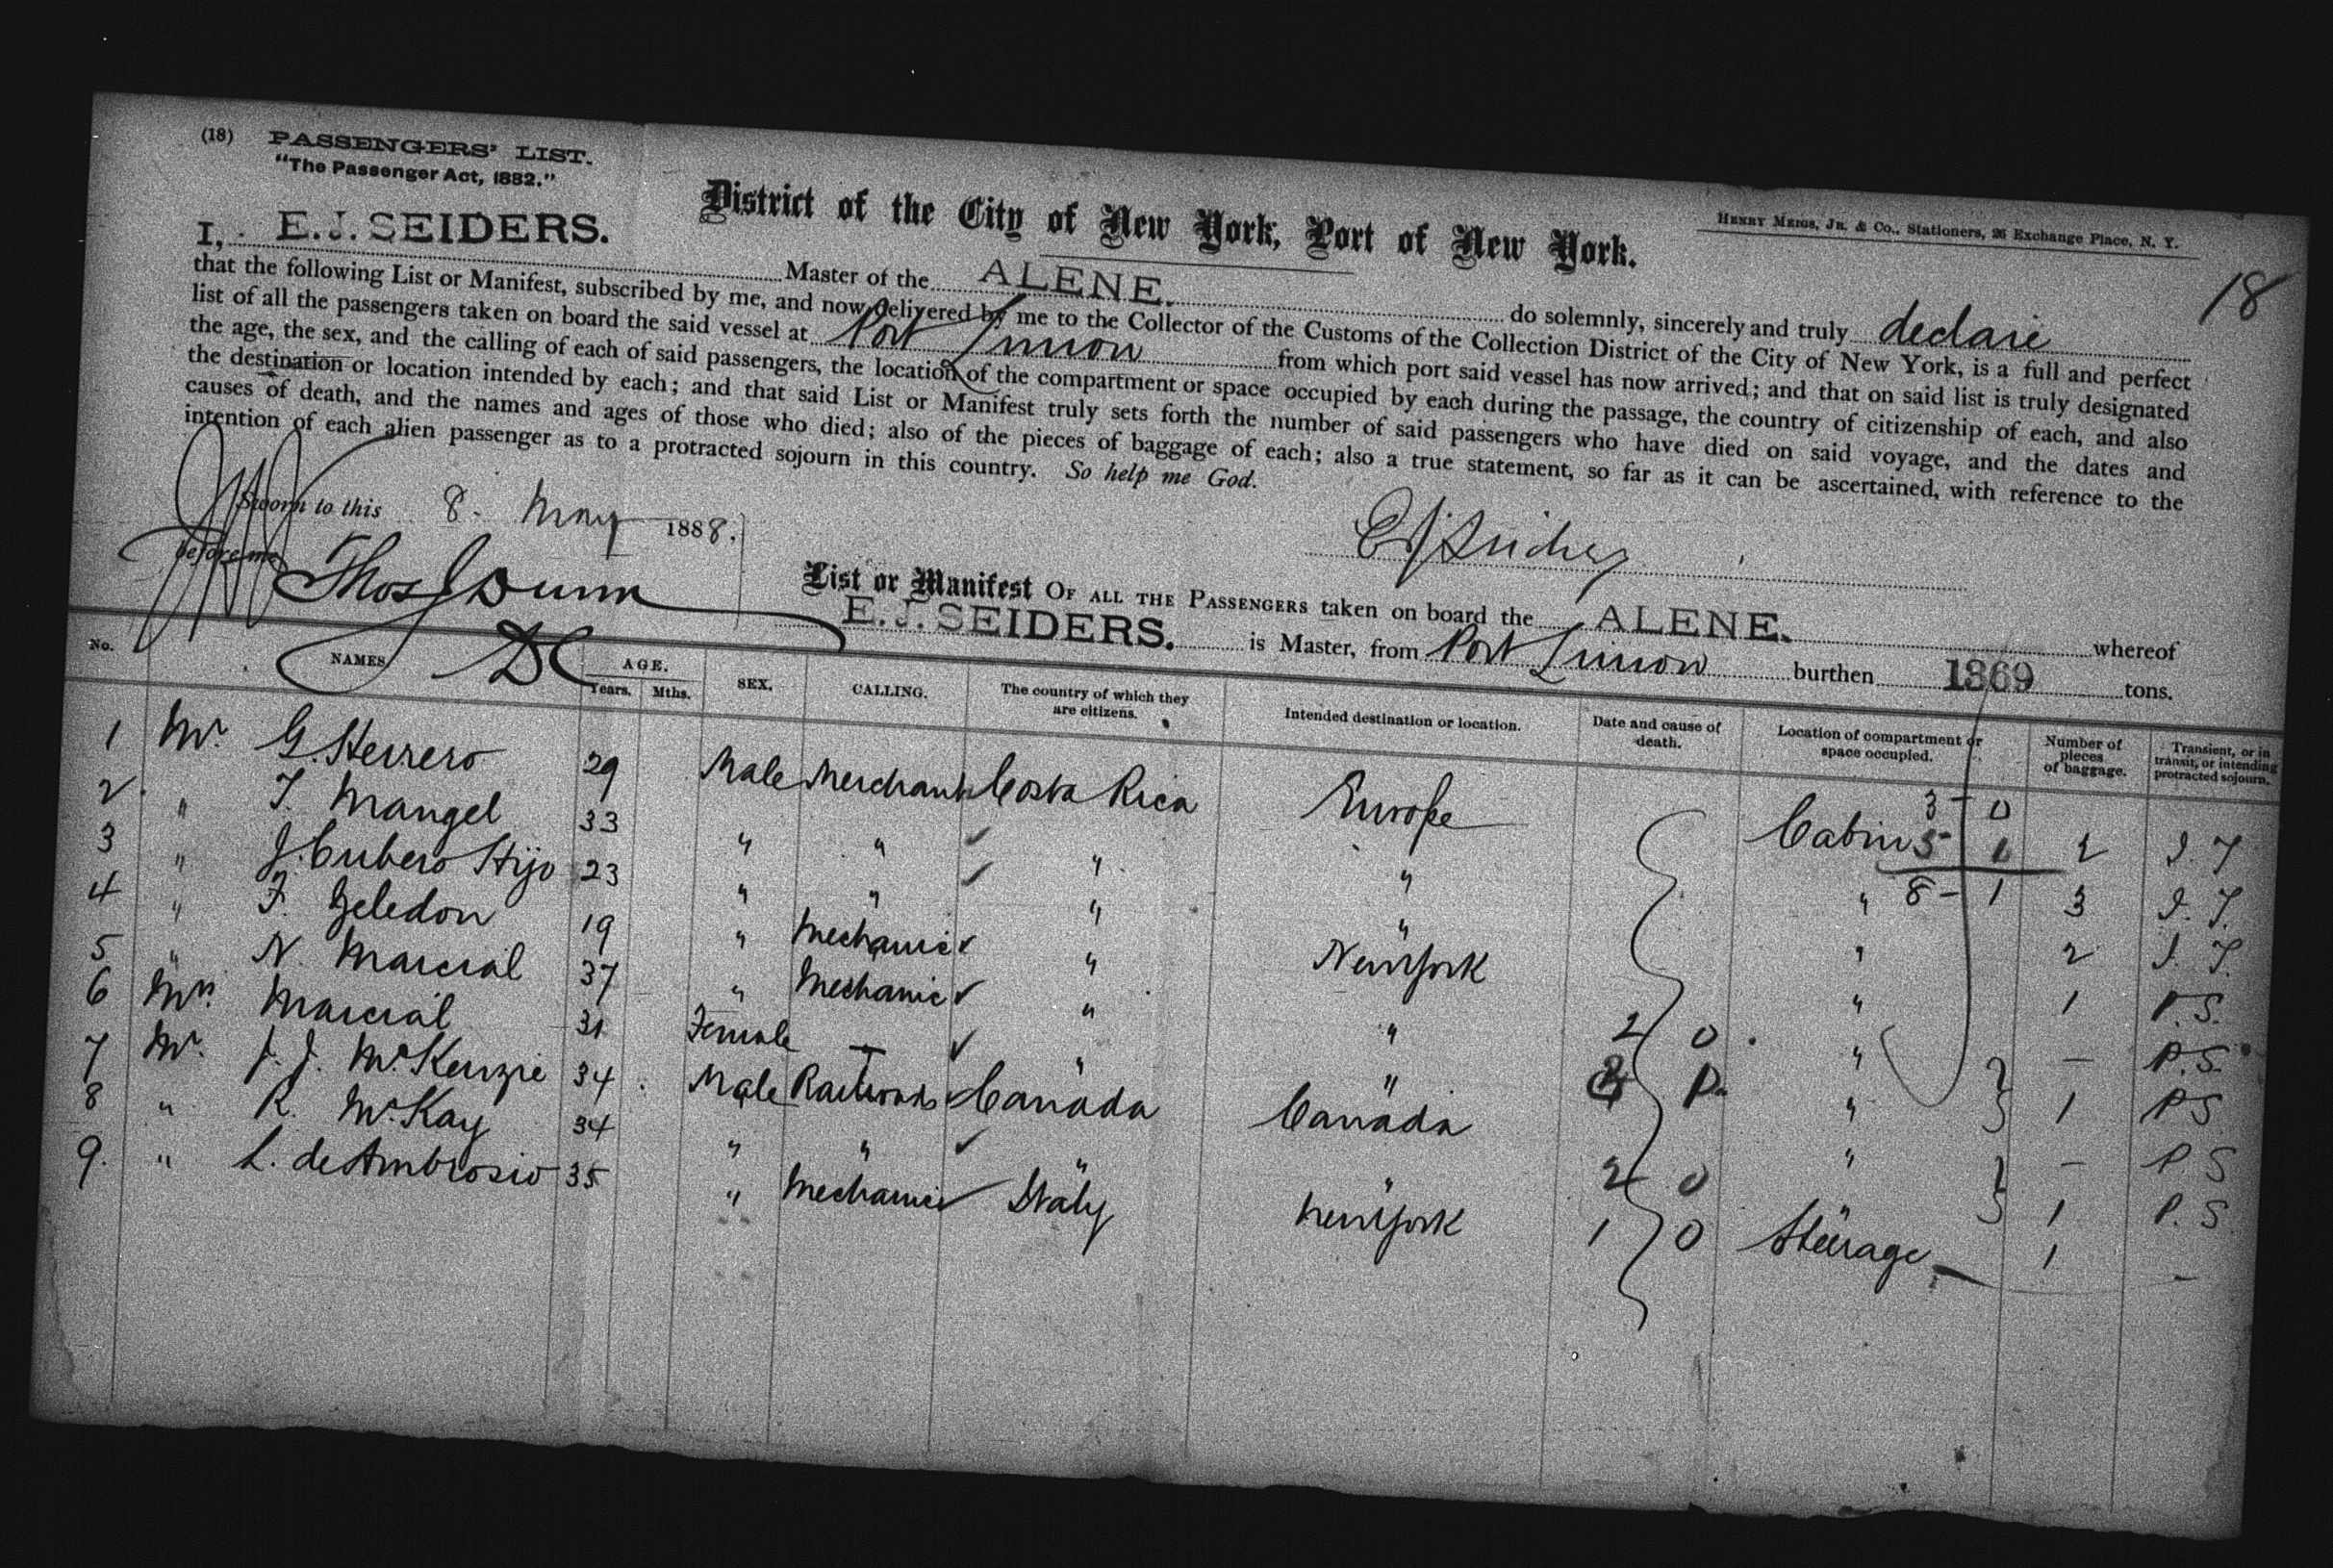 (18) PASSENGERS' LIST.
"The Passenger Act, 1882."
District of the City of New York, Port of New York.
HENRY MEIGS, JR. & Co., Stationers, 26 Exchange Place, N. Y.
18
I, E. J. SEIDERS. Master of the ALENE. do solemnly, sincerely and truly declare
that the following List or Manifest, subscribed by me, and now delivered by me to the Collector of the Customs of the Collection District of the City of New York, is a full and perfect
list of all the passengers taken on board the said vessel at Port Limon from which port said vessel has now arrived; and that on said list is truly designated
the age, the sex, and the calling of each of said passengers, the location of the compartment or space occupied by each during the passage, the country of citizenship of each, and also
the destination or location intended by each; and that said List or Manifest truly sets forth the number of said passengers who have died on said voyage, and the dates and
causes of death, and the names and ages of those who died; also of the pieces of baggage of each; also a true statement, so far as it can be ascertained, with reference to the
intention of each alien passenger as to a protracted sojourn in this country. So help me God.
Sworn to this 8. May 1888.
before me
Thos J Dunn
DC
E J Seiders
List or Manifest OF ALL THE PASSENGERS taken on board the ALENE. whereof
E. J. SEIDERS. is Master, from Port Limon burthen 1369 tons.
No. NAMES AGE. Years. Mths. SEX. CALLING. The country of which they are citizens. Intended destination or location. Date and cause of death. Location of compartment or space occupied. Number of pieces of baggage. Transient, or in transit, or intending protracted sojourn.
3 - 0
5 1
8 - 1
1 Mr. G. Herrero 29 Male Merchant Costa Rica Europe Cabin 2 I. T
2 " T. Mangel 33 " " " " " 3 I. T.
3 " J. Cubero Hijo 23 " " " " " 2 I. T.
4 " F. Zeledon 19 " Mechanic " New York " 1 P. S.
5 " N. Marcial 37 " Mechanic " " 2 0 " - P. S.
6 Mrs. Marcial 31 Female - " " P. " 1 P S
7 Mr. J. J. McKenzie 34 Male Railroads Canada Canada " - P S
8 " R. McKay 34 " " " " 2 0 " 1 P. S
9. " L. de Ambrosio 35 " Mechanic Italy New York 1 0 Steerage 1 -